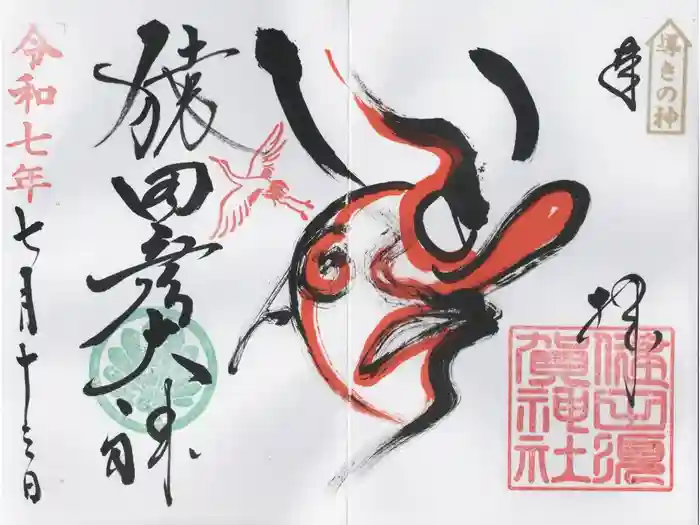 導きの神
奉
拝
賀神社
猿田彦大神
令和七年
七月十三日